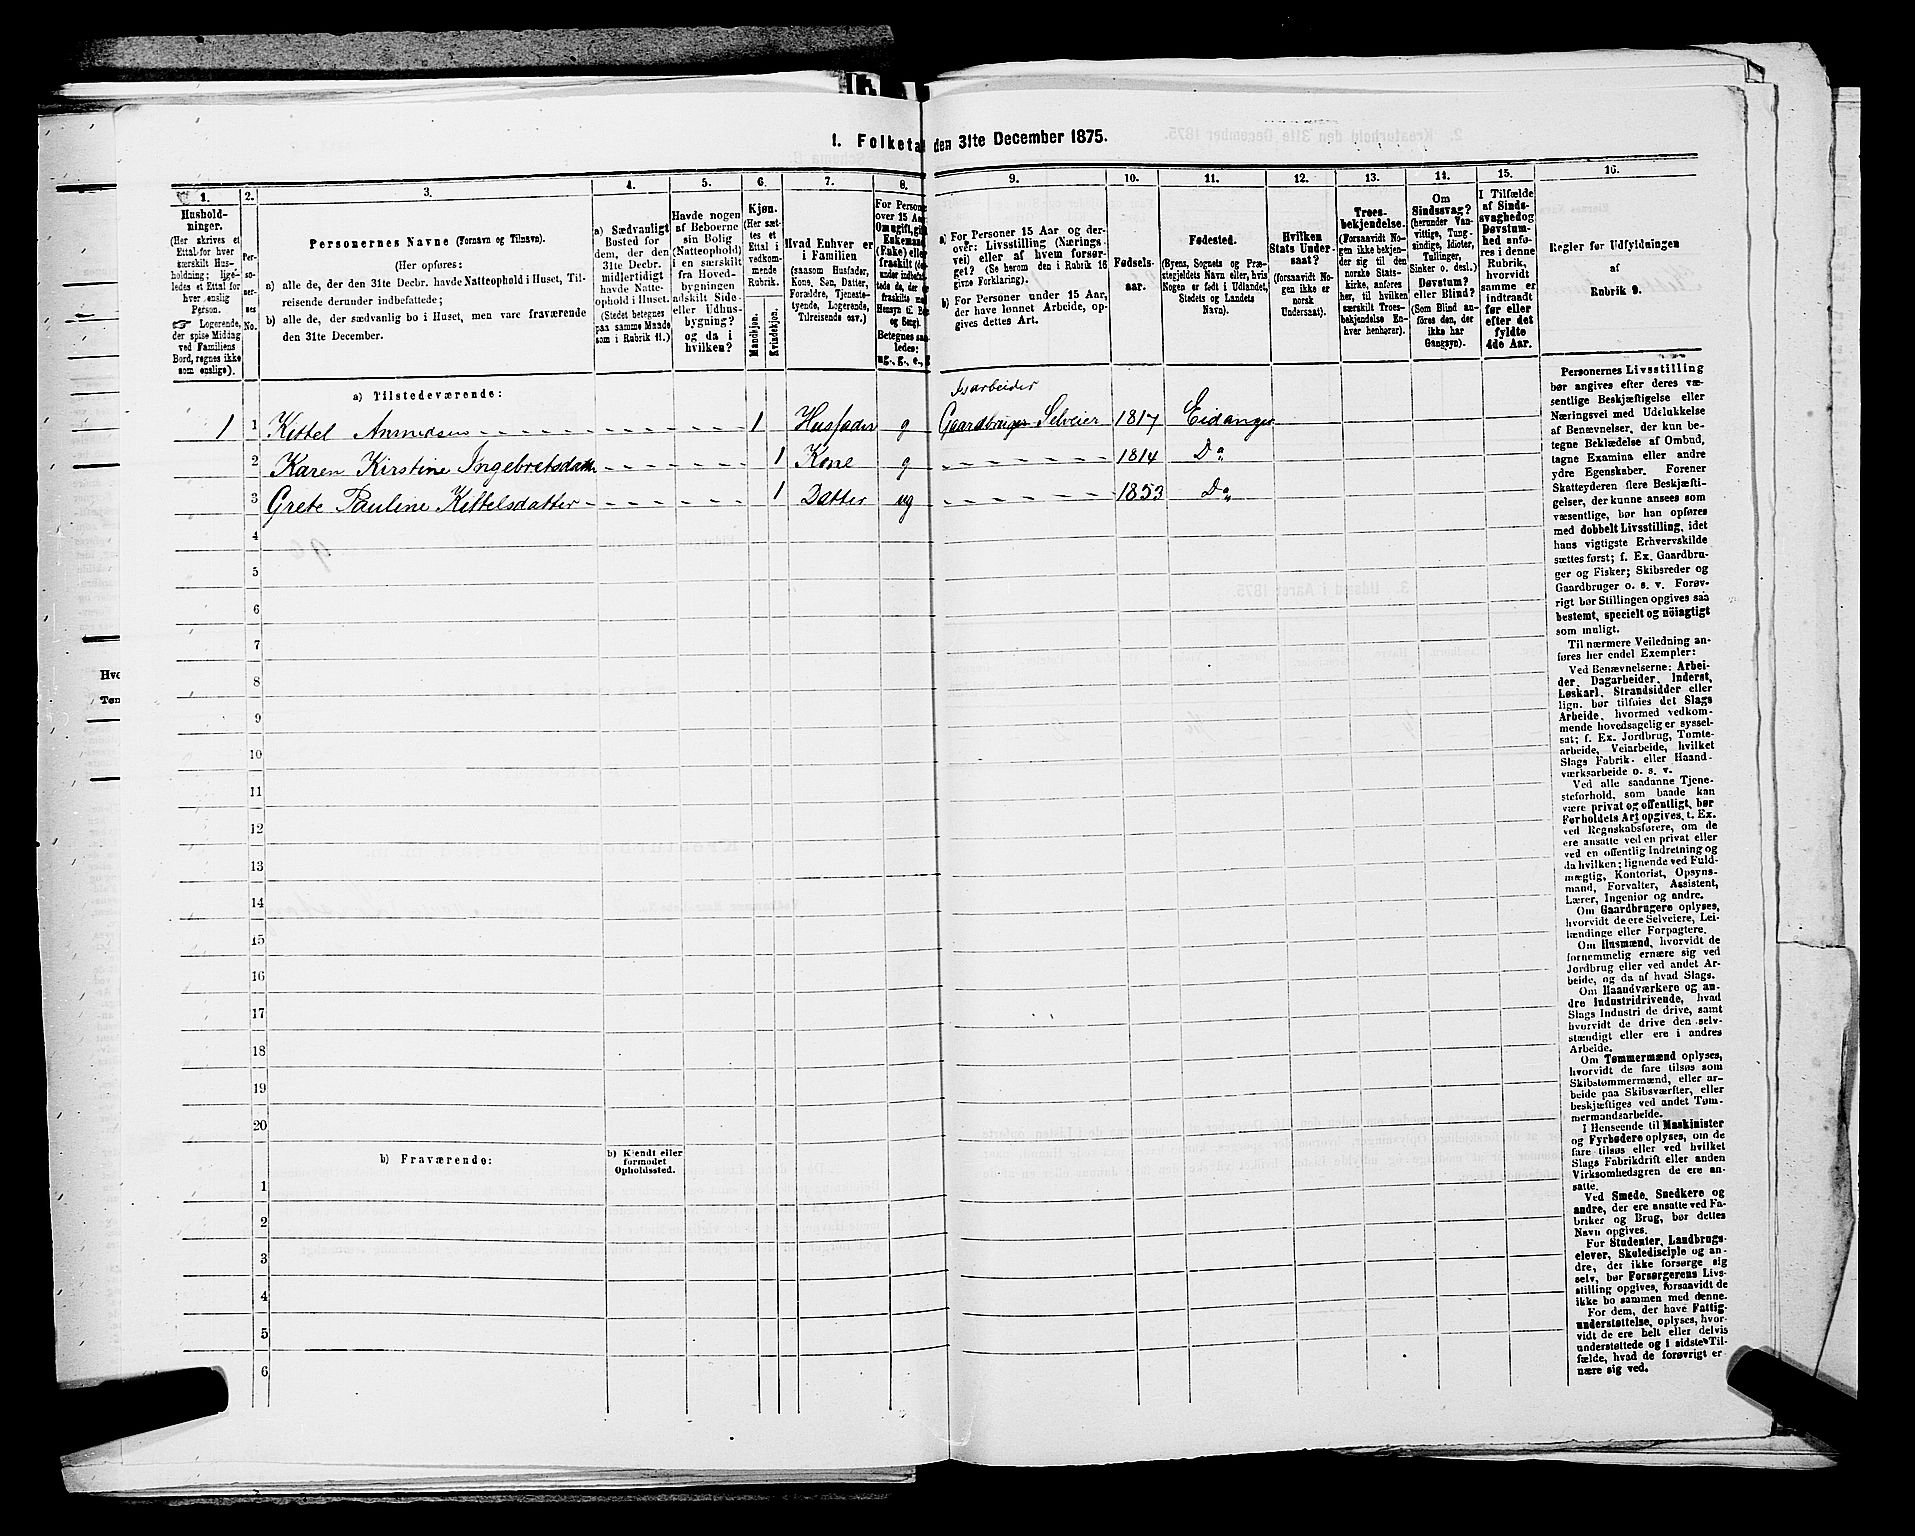 1. Folketal den 31te December 1875.
1. 2. 3. 4. 5. 6. 7. 8. 9. 10. 11. 12. 13. 14. 15. 16.
Hushold-
ninger.
(Her skrives et
Ettal for hver
særskilt Hus-
holdning; lige-
ledes et Ettal for
hver enslig
Person.
☞ Logerende,
der spise Middag
ved Familiens
Bord, regnes ikke
som enslige).
Per-
so-
ner-
nes
No.
Personernes Navne (Fornavn og Tilnavn).
(Her opføres:
a) alle de, der den 31te Decbr. havde Natteophold i Huset, Til-
reisende derunder indbefattede;
b) alle de, der sædvanlig bo i Huset, men vare fraværende
den 31te December.
a) Sædvanligt
Bosted for
dem, der den
31te Decbr.
midlertidigt
havde Natte-
ophold i Huset.
(Stedet betegnes
paa samme Maade
som i Rubrik 11.)
Havde nogen
af Beboerne
sin Bolig
(Natteophold)
i en særskilt
fra Hoved-
bygningen
adskilt Side-
eller Udhus-
bygning?
og da i
hvilken?
Kjøn.
(Her sæt-
tes et
Ettal i
vedkom-
mende
Rubrik.)
Mandkjøn.
Kvindekjøn.
Hvad Enhver er
i Familien
(saasom Husfader,
Kone, Søn, Datter,
Forældre, Tjeneste-
tyende, Logerende,
Tilreisende osv.)
For Persone
over 15 Aar
Om ugift, gift
Enkemand
(Enke) eller
fraskilt
Betegnes saa-
ledes:
ug., g., e.,
a) For Personer 15 Aar og der-
over: Livsstilling (Nærings-
vei) eller af hvem forsør-
get? (Se herom den i Rubrik 16
givne Forklaring).
b) For Personer under 15 Aar,
der have lønnet Arbeide, op-
gives dettes Art.
Fødsels-
aar.
Fødested.
(Byens, Sognets og Præ-
stegjeldets Navn eller, hvis
Nogen er født i Udlandet,
Stedets og Landets
Navn).
Hvilken
Stats Under-
saat?
(forsaavidt No-
gen ikke er
norsk
Undersaat).
Troes-
bekjendelse.
(Forsaavidt No-
gen ikke bekjen-
der sig til den
norske Stats-
kirke, anføres
her, til hvilken
særskilt Troes-
bekjendelse En-
hver henhører).
Om
Sindssvag?
(herunder Van-
vittige, Tung-
sindige, Idioter,
Tullinger,
Sinker o. desl.)
Døvstum?
eller Blind?
(Som Blind an-
føres den, der
ikke har
Gangsyn).
I Tilfælde
af Sinds-
svaghed og
Døvstum-
hed anfø-
res i denne
Rubrik,
hvorvidt
samme er
indtraadt
før eller
efter det
fyldte
4de Aar.
Regler for Udfyldningen
af
Rubrik 9.
a) Tilstedeværende:
Isarbeider
1 1 Kittel 1 Husfader g Gaardbruger Selveier 1817 Eidanger
2 Karen Kirstine Ingebretsdatt. 1 Kone g 1814 Do
3 Grete Pauline Kittelsdatter 1 Datter ug 1853 Do
4
5
6
7
8
9
10
11
12
13
14
15
16
17
18
19
20
b) Fraværende:
b) Kjendt eller
formodet
Opholdssted.
1
2
3
4
5
6
Personernes Livsstilling
bør angives efter deres væ-
sentlige Beskjæftigelse eller
Næringsvei med Udelukkelse
af Benævnelser, der kun be-
tegne Beklædelse af Ombud,
tagne Examina eller andre
ydre Egenskaber. Forener
Skatteyderen flere Beskjæfti-
gelser, der kunne ansees som
væsentlige, bør han opføres
med dobbelt Livsstilling, idet
hans vigtigste Erhvervskilde
sættes først; f. Ex. Gaardbru-
ger og Fisker; Skibsreder og
Gaardbruger o. s. v. Forøv-
rigt bør Stillingen opgives saa
bestemt, specielt og nöiagtigt
som muligt.
Til nærmere Veiledning an-
føres her endel Exempler:
Ved Benævnelserne: Arbei-
der, Dagarbeider, Inderst,
Løskarl, Strandsidder eller
lign. bør tilføies det Slags
Arbeide, hvormed vedkom-
mende hovedsagelig er syssel-
sat; f. Ex. Jordbrug, Tomte-
arbeide, Veiarbeide, hvilket
Slags Fabrik- eller Haand-
værksarbeide o. s. v.
Ved alle saadanne Tjene-
steforhold, som baade kan
være privat og offentligt, bør
Forholdets Art opgives, t. Ex.
ved Regnskabsførere, om de
ere ansatte ved en privat eller
ved en offentlig Indretning og
da hvilken; lignende ved Fuld-
mægtig, Kontorist, Opsyns-
mand, Forvalter, Assistent,
Lærer, Ingeniør og andre.
Om Gaardbrugere oplyses,
hvorvidt de ere Selveiere, Lei-
lændinge eller Forpagtere.
Om Husmænd, hvorvidt de
fornemmelig ernære sig ved
Jordbrug eller ved andet Ar-
beide, og da af hvad Slags.
Om Haandværkere og an-
dre Industridrivende, hvad
Slags Industri de drive, samt
hvorvidt de drive den selv-
stændigt eller ere i andres
Arbeide.
Om Tømmermænd oplyses,
hvorvidt de fare tilsøs som
Skibstømmermænd, eller ar-
beide paa Skibsværfter, eller
beskjæftiges ved andet Tøm-
mermandsarbeide.
I Henseende til Maskinister
og Fyrbødere oplyses, om de
fare tilsøs eller ved hvilket
Slags Fabrikdrift eller anden
Virksomhedsgren de ere an-
satte.
Ved Smede, Snedkere og
andre, der ere ansatte ved Fa-
briker og Brug, bør dettes
Navn opgives.
For Studenter, Landbrugs-
elever, Skoledisciple og an-
dre, der ikke forsørge sig
selv, bør Forsørgerens Livs-
stilling opgives, forsaavidt de
ikke bo sammen med denne.
For dem, der have Fattig-
understøttelse, oplyses, hvor-
vidt de ere helt eller delvis
understøttede og i sidste Til-
fælde, hvad de forøvrigt er-
nære sig ved.